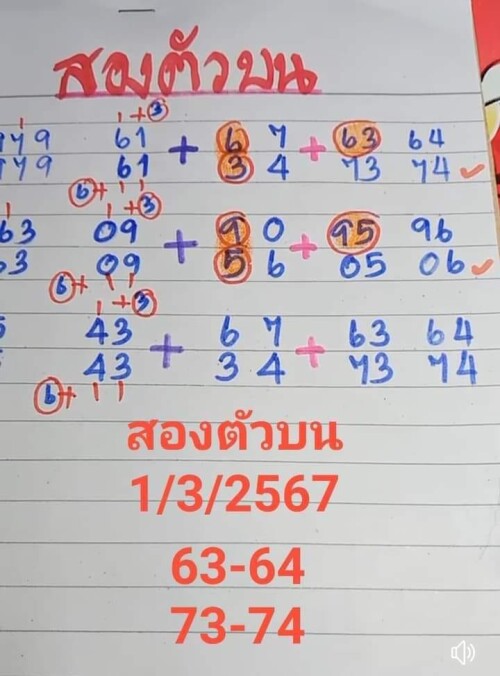 สองตัวบน
1+3
979 61 + 6 7 + 63 64
979 61 3 4 73 74
6+ 1 1 1+3
63 09 + 9 0 + 95 96
63 09 5 6 05 06
6+ 1 1 1+3
43 + 6 7 + 63 64
43 3 4 73 74
6+ 1 1
สองตัวบน
1/3/2567
63-64
73-74